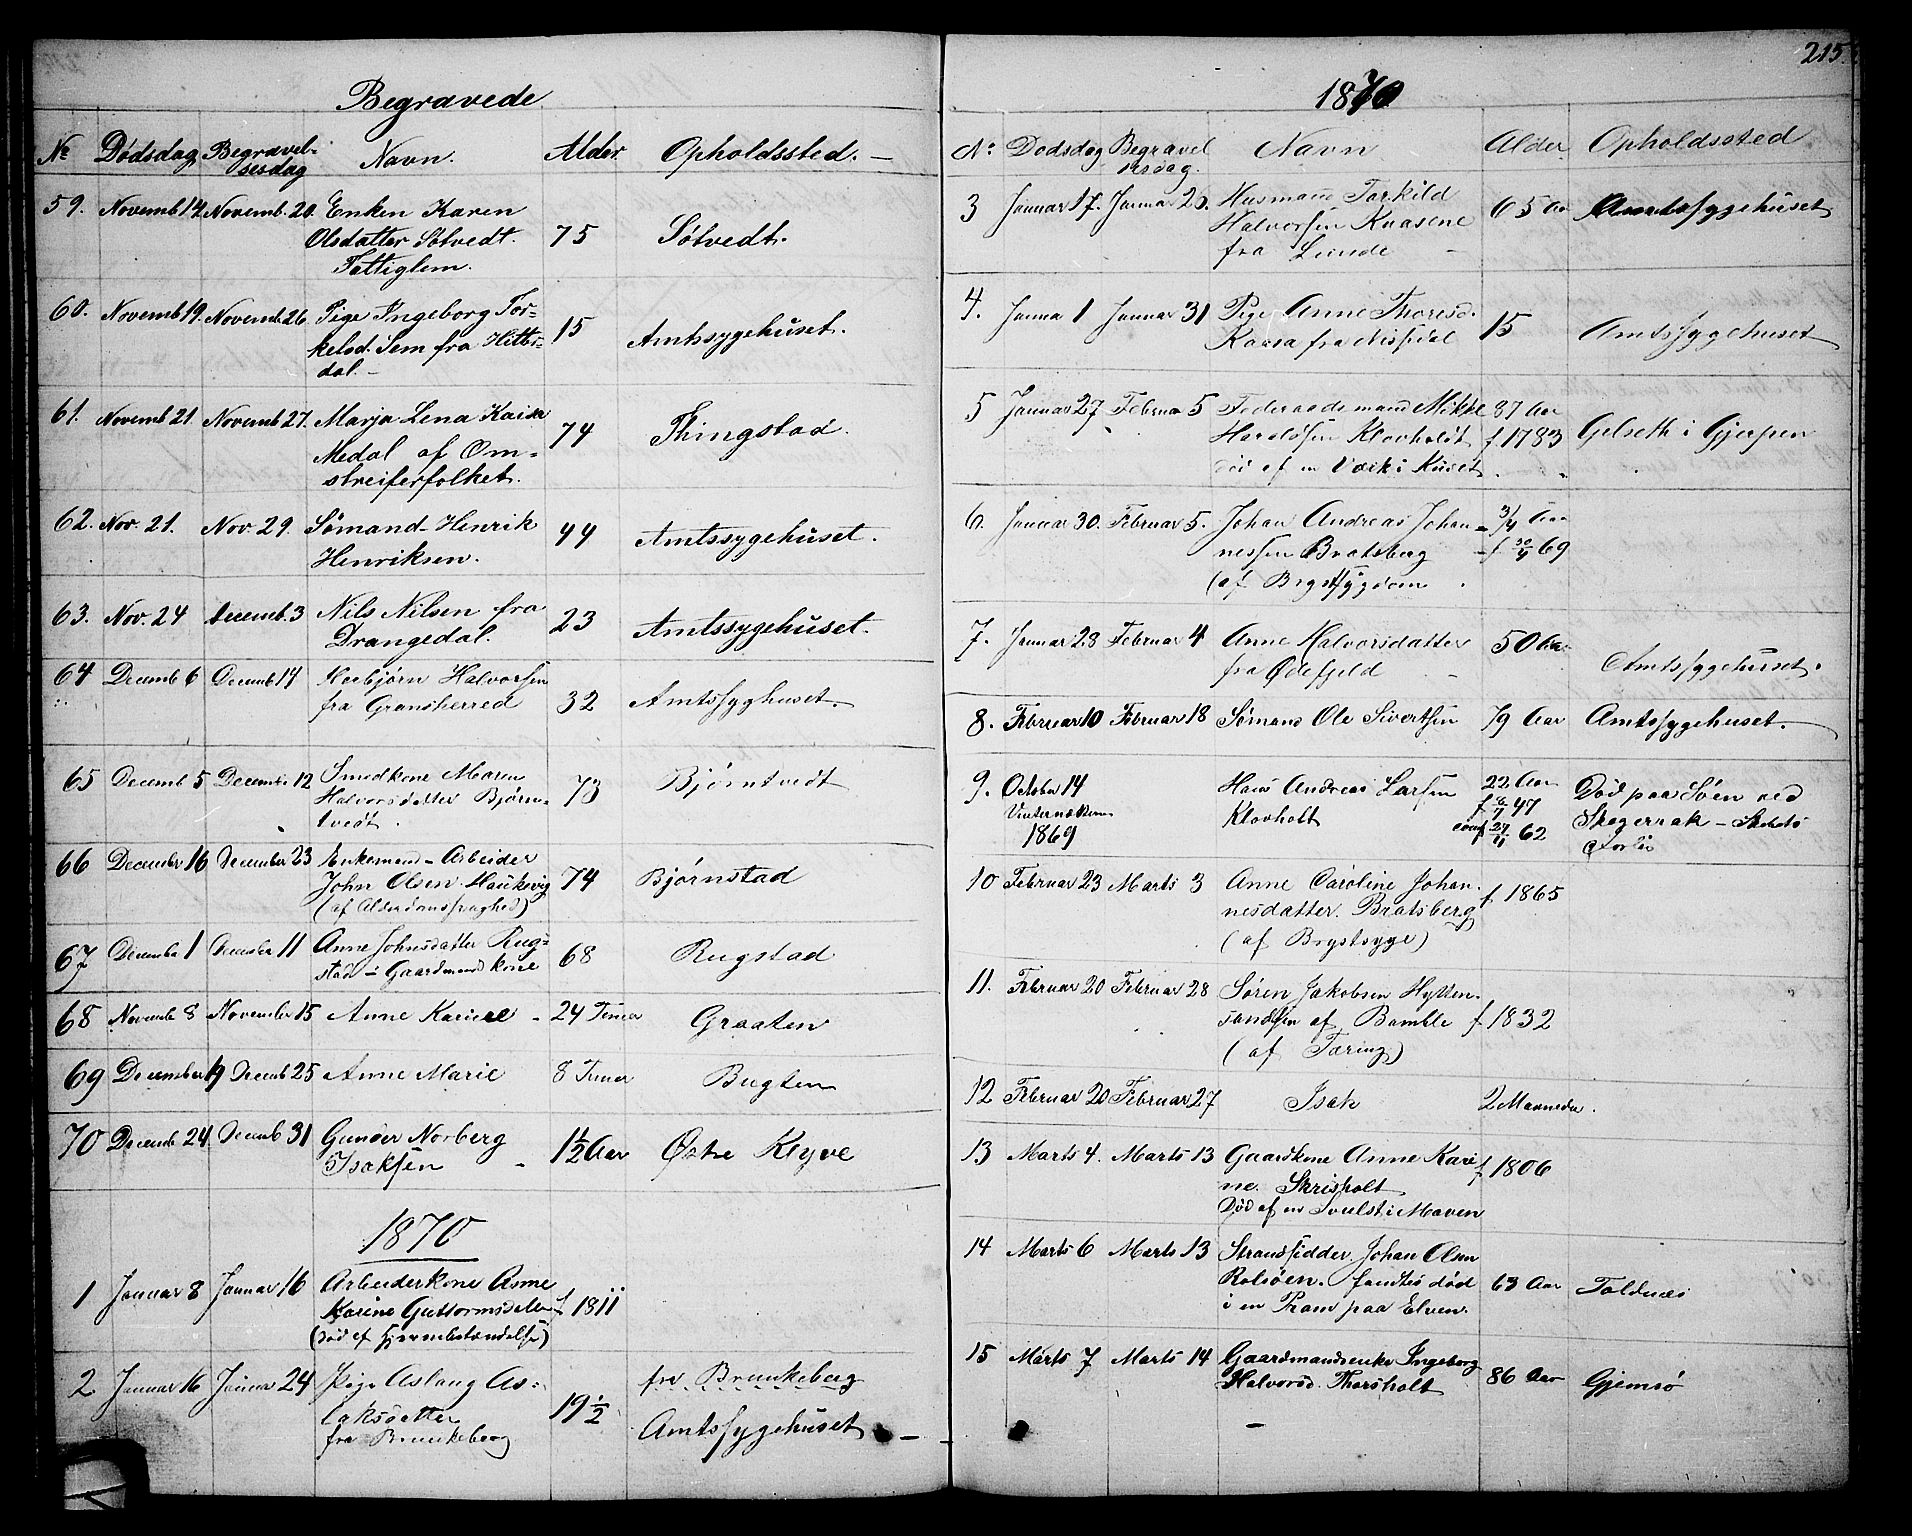 Begravede
No Dødsdag Begravelsesdag Navn. Alder. Opholdssted.
59. Novemb 14 Novemb. 20. Enken Karen
Olsdatter Sötvedt. 75 Sötvedt.
Fattiglem.
60. Novemb 19. Novemb 26 Pige Ingeborg Tor-
kelsd. Sem fra Hitter- 15 Amtssygehuset.
dal.
61. Novemb 21. Novemb 27. Marja Lena Kaisa
Medal af Om- 74 Thingstad.
streiferfolket.
62. Nov. 21. Nov. 29. Sömand Henrik 44 Amtssygehuset.
Henriksen.
63. Nov. 24 Decemb. 3 Nils Nilsen fra 23 Amtssygehuset.
Drangedal.
64 Decemb 6 Decemb 14 Halvorsen
fra Gransherred 32 Amtssyghuset.
65 Decemb 5 Decembr 12 Smedkone Maren
Halvorsdatter Bjørn- 73 Bjørntvedt
tvedt.
66 December 16 December 23 Enkemand - Arbeider
John Olsen Haukevig 74 Bjørnstad
(af Alderdomssvaghed)
67 Decembe 1 December 11 Anne Johnsdatter Rug-
stad - Gaardmandskone 68 Rugstad
68 Novemb 8 November 15 Anne Karine - 24 Timer Graaten
69 December 19 Decemb 25 Anne Marie 8 Timer Bugten
70 Decemb 24. Decemb 31 Gunder Norberg
Isaksen 1½ Aar Østre Klyve
1870
1 Januar 8 Januar 16 Arbeiderkone Anne
Karine Guttormsdatter f 1811
(Død af Hjernebetændelse)
2 Januar 16 Januar 24 Pige Aslaug As- fra Brunkeberg
laksdatter 19½ Amtssygehuset
fra Brunkeberg
215
1870
No. Dødsdag Begravelsesdag. Navn Alder. Opholdssted
3 Januar 17. Januar 25. Husmand Tarkild
Halvorsen Kaasene 65 Aar Amtssygehuset
fra Lunde
4. Janua 1 Januar 31 Pige Anne Thoresd.
Kaasa fra Nissedal 15 Amtssygehuset
5 Januar 27 Februa 5 Föderaadsmand Mikkel 87 Aar
Haraldsen Klovholdt f 1783 Gelseth i Gjerpen
död af en Væsk i Huset
6. Januar 30. Februar 5. Johan Andreas Johan- 3/4 Aar
nessen Bratsberg f 30/4 69
(af Brystsygdom
7. Januar 23 Februar 4 Anne Halvorsdatter 50 Aar
fra Ødefjeld Amtssygehuset.
8. Februar 10 Februar 18 Sömand Ole Sivertsen 79 Aar Amtssygehuset.
9. October 14 Hans Andreas Larsen 22 Aar Död paa Söen ved
Vinternætterne Klovholt f 6/7 47 Skagerrak - Skibets
1869 conf 27/11 62 Forlis
10 Februar 23 Marts 3 Anne Caroline Johan-
nesdatter. Bratsberg f 1865
(af Brystsyge)
11. Februar 20 Februar 28 Søren Jakobsen Hytten-
af Bamble f 1832
(af Tæring)
12 Februar 20 Februar 27 Isak 2 Maaneder.
13 Marts 4. Marts 13 Gaardkone Anne Kari-
ne. Skrisholt f 1806
Död af en Svulst i Maven
14 Marts 6 Marts 13 Strandsidder Johan Olsen
Rolsöen. fandtes död 63 Aar Toldnæs
i en Pram paa Elven.
15 Marts 7 Marts 14 Gaardmandsenke Ingeborg
Halvorsd. Thorsholt 86 Aar Gjemsö